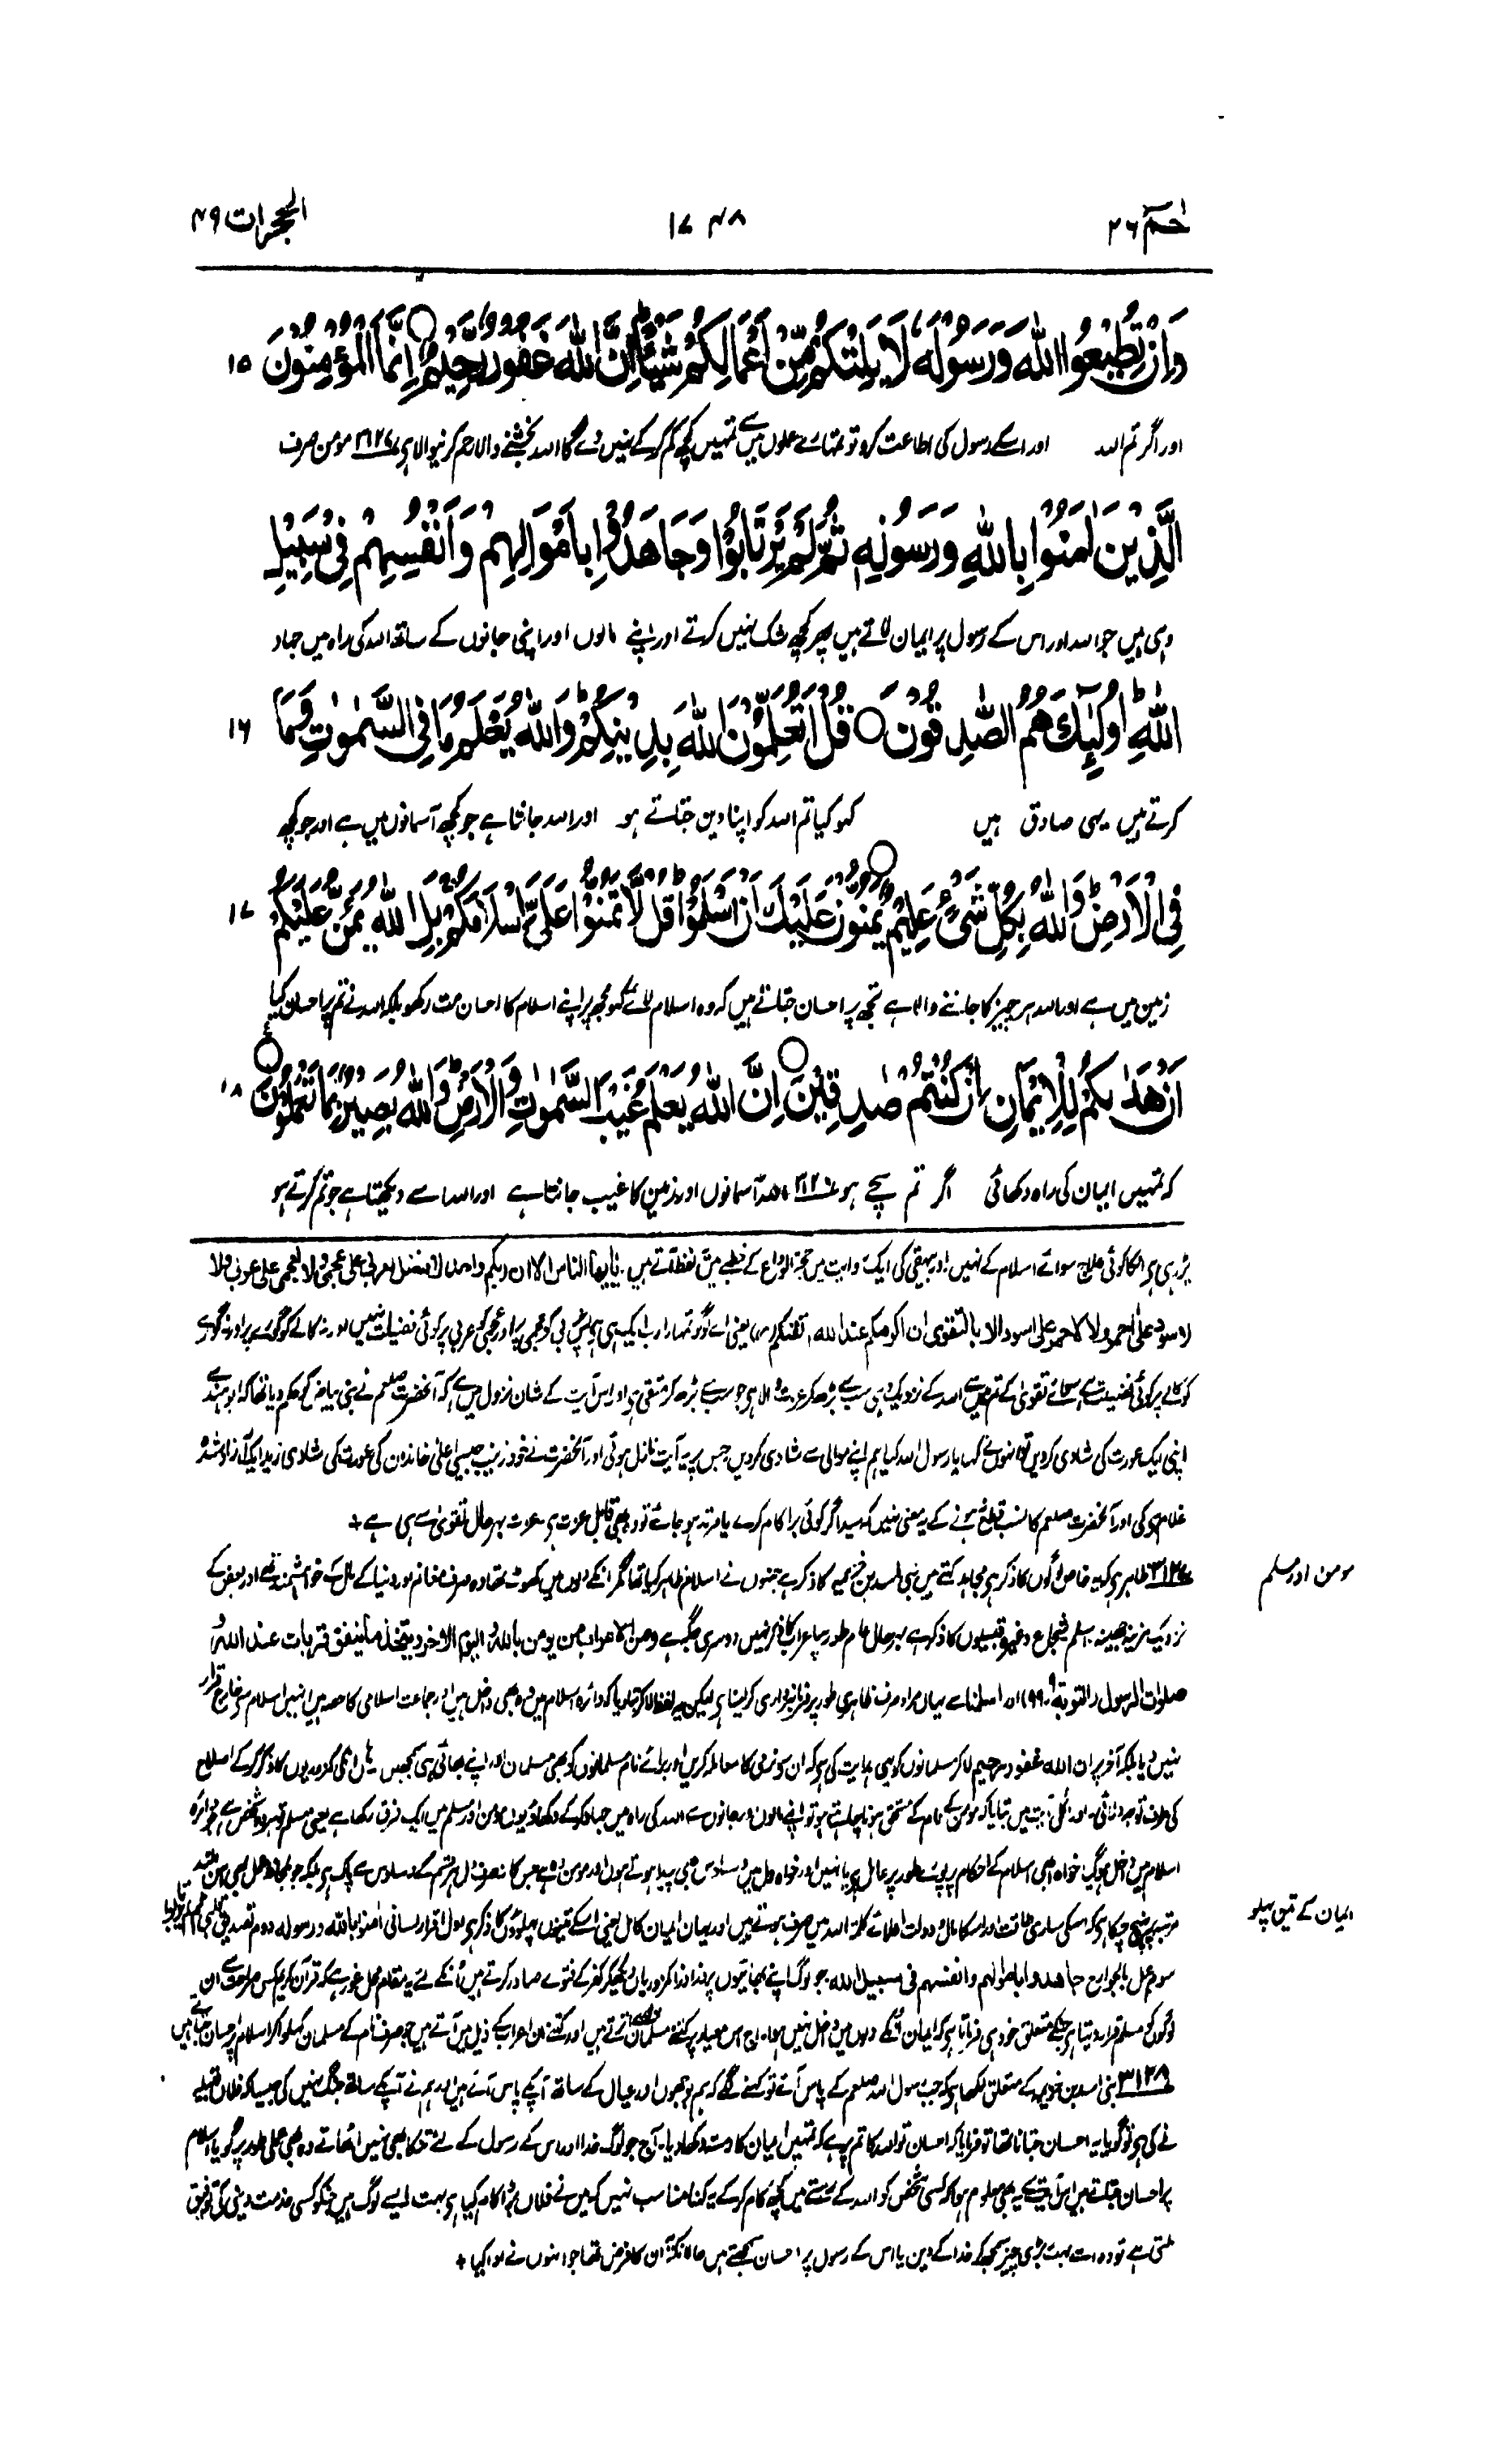 حٰمٓ ۲۶
۱۷۴۸
الحجرات ۴۹
وَاِنْ تُطِيْعُوا اللّٰهَ وَرَسُوْلَهٗ لَا يَلِتْكُمْ مِّنْ اَعْمَالِكُمْ شَيْـًٔا ؕ اِنَّ اللّٰهَ غَفُوْرٌ رَّحِيْمٌ ○ اِنَّمَا الْمُؤْمِنُوْنَ ۱۵
اور اگر تم اللہ اور اسکے رسول کی اطاعت کرو تو تمہارے عملوں میں سے تمہیں کچھ کم کرکے نہیں دے گا اللہ بخشنے والا رحم کرنیوالا ہی ۳۱۲۷ مومن صرف
الَّذِيْنَ اٰمَنُوْا بِاللّٰهِ وَرَسُوْلِهٖ ثُمَّ لَمْ يَرْتَابُوْا وَجَاهَدُوْا بِاَمْوَالِهِمْ وَاَنْفُسِهِمْ فِيْ سَبِيْلِ
وہی ہیں جو اللہ اور اس کے رسول پر ایمان لاتے ہیں پھر کچھ شک نہیں کرتے اور اپنے مالوں اور اپنی جانوں کے ساتھ اللہ کی راہ میں جہاد
اللّٰهِ ؕ اُولٰٓئِكَ هُمُ الصّٰدِقُوْنَ ○ قُلْ اَتُعَلِّمُوْنَ اللّٰهَ بِدِيْنِكُمْ ؕ وَاللّٰهُ يَعْلَمُ مَا فِي السَّمٰوٰتِ وَمَا ۱۶
کرتے ہیں یہی صادق ہیں کہو کیا تم اللہ کو اپنا دین جتلاتے ہو اور اللہ جانتا ہے جو کچھ آسمانوں میں ہے اور جو کچھ
فِي الْاَرْضِ ؕ وَاللّٰهُ بِكُلِّ شَيْءٍ عَلِيْمٌ ○ يَمُنُّوْنَ عَلَيْكَ اَنْ اَسْلَمُوْا ؕ قُلْ لَّا تَمُنُّوْا عَلَيَّ اِسْلَامَكُمْ ۚ بَلِ اللّٰهُ يَمُنُّ عَلَيْكُمْ ۱۷
زمین میں ہے اور اللہ ہر چیز کا جاننے والا ہے تجھ پر احسان جتاتے ہیں کہ وہ اسلام لائے کہو مجھ پر اپنے اسلام کا احسان مت رکھو بلکہ اللہ نے تم پر احسان کیا
اَنْ هَدٰىكُمْ لِلْاِيْمَانِ اِنْ كُنْتُمْ صٰدِقِيْنَ ○ اِنَّ اللّٰهَ يَعْلَمُ غَيْبَ السَّمٰوٰتِ وَالْاَرْضِ ؕ وَاللّٰهُ بَصِيْرٌۢ بِمَا تَعْمَلُوْنَ ○ ۱۸
کہ تمہیں ایمان کی راہ دکھائی اگر تم سچے ہو ۳۱۲۸ اللہ آسمانوں اور زمین کا غیب جانتا ہے اور اللہ اسے دیکھتا ہے جو تم کرتے ہو
پڑ رہی ہی اسکا کوئی علاج سوائے اسلام کے نہیں اور بیہقی کی ایک روایت میں حجۃ الوداع کے خطبے میں یہ لفظ آتے ہیں۔ یایھا الناس الا ان ربکم واحد لا فضل لعربی علی عجمی ولا لعجمی علی عربی ولا
لاسود علی احمر ولا لاحمر علی اسود الا بالتقوی ان اکرمکم عند اللہ اتقٰکم یعنی اے لوگو تمہارا رب ایک ہی ہی عربی کو عجمی پر اور عجمی کو عربی پر کوئی فضیلت نہیں اور نہ کالے کو گورے پر اور نہ گورے
کو کالے پر کوئی فضیلت ہے سوائے تقویٰ کے تم میں سے اللہ کے نزدیک وہی سب سے بڑھ کر عزت والا ہی جو سب سے بڑھ کر متقی ہی اور اس آیت کے شان نزول میں ہے کہ آنحضرت صلعم نے بنی بیاضہ کو حکم دیا تھا کہ ابو ہند سے
اپنی ایک عورت کی شادی کر دیں تو انہوں نے کہا یا رسول اللہ کیا ہم اپنے موالی سے شادی کر دیں جس پر یہ آیت نازل ہوئی اور آنحضرت نے خود زینب جیسی اعلیٰ خاندان کی عورت کی شادی زید ایک آزاد شدہ
غلام سے کی اور آنحضرت صلعم کا نسب قطع ہونے کے یہ معنی نہیں کہ سید اگر کوئی برا کام کرے یا مرتد ہو جائے تو وہ بھی قابل عزت ہی عزت بہرحال تقویٰ سے ہی ہے +
مومن اور مسلم
۳۱۲۷ ظاہر ہی کہ یہ خاص لوگوں کا ذکر ہی مجاہد کہتے ہیں بنی اسد بن خزیمہ کا ذکر ہے جنہوں نے اسلام ظاہر کیا تھا مگر انکے دلوں میں کھوٹ تھا وہ صرف مغانم اور دنیا کے مال کے خواہشمند تھے اور بعض کے
نزدیک مزینہ جہینہ اسلم اشجع وغیرہ قبیلوں کا ذکر ہے بہرحال عام طور پر اعراب کا ذکر نہیں دوسری جگہ ہے ومن الاعراب من یومن باللہ والیوم الاخر ویتخذ ما ینفق قربات عند اللہ و
صلوات الرسول (التوبۃ ۹ - ۹۹) اور اسلمنا سے یہاں مراد صرف ظاہری طور پر فرمانبرداری کر لینا ہی لیکن یہ لفظ لا کر بتا دیا کہ دائرہ اسلام میں وہ بھی داخل ہیں اور جماعت اسلامی کا حصہ ہیں انہیں اسلام سے خارج قرار
نہیں دیا بلکہ آخر پر ان اللہ غفور رحیم لا کر مسلمانوں کو یہی ہدایت کی ہی کہ ان سے نرمی کا معاملہ کریں اور برائے نام مسلمانوں کو بھی مسلمان اور اپنے بھائی ہی سمجھیں ہاں انکی کمزوریوں کا ذکر کرکے اصلاح
کی طرف توجہ دلائی اور اگلی آیت میں بتایا کہ مومن کے نام کے مستحق ہونا چاہتے ہو تو اپنے مالوں اور جانوں سے اللہ کی راہ میں جہاد کرکے دکھاؤ یوں مومن اور مسلم میں ایک فرق رکھا ہے یعنی مسلم تو ہر وہ شخص ہے جو دائرہ
اسلام میں داخل ہو گیا خواہ ابھی اسلام کے احکام پر پورے طور پر عامل ہی یا نہیں اور خواہ دل میں وساوس بھی پیدا ہوتے ہوں اور مومن وہ ہے جس کا نہ صرف دل ہر قسم کے وساوس سے پاک ہی بلکہ جو بلحاظ عمل بھی اس بلند
ایمان کے تین پہلو
مرتبہ پر پہنچ چکا ہی کہ اسکی ساری طاقت اور اسکا مال و دولت اعلائے کلمۃ اللہ میں صرف ہوتے ہیں اور یہاں ایمان کامل یعنی اسکے تینوں پہلوؤں کا ذکر ہی اول اقرار لسانی اٰمنوا باللہ ورسولہ دوم تصدیق قلبی ثم لم یرتابوا
سوم عمل بالجوارح جاھدوا باموالھم وانفسھم فی سبیل اللہ جو لوگ اپنے بھائیوں پر ذرا ذرا کمزوریاں دیکھ کر کفر کے فتوے صادر کرتے ہیں انکے لئے یہ مقام محل غور ہے کہ قرآن کریم کس صراحت سے ان
لوگوں کو مسلم قرار دیتا ہی جنکے متعلق خود ہی فرماتا ہی کہ ایمان انکے دلوں میں داخل نہیں ہوا۔ آج اس معیار پر کتنے مسلمان اترتے ہیں اور کتنے ان اعراب کے ذیل میں آتے ہیں جو صرف نام کے مسلمان کہلوا کر اسلام پر احسان جتاتے ہیں
۳۱۲۸ بنی اسد بن خزیمہ کے متعلق لکھا ہی کہ جب رسول اللہ صلعم کے پاس آئے تو کہنے لگے کہ ہم بوجھوں اور عیال کے ساتھ آپکے پاس آئے ہیں اور ہم نے آپکے ساتھ جنگ نہیں کی جیسا کہ فلاں قبیلے
نے کی ہی تو گویا یہ احسان جتانا تھا تو فرمایا کہ احسان تو اللہ کا تم پر ہے کہ تمہیں ایمان کا رستہ دکھا دیا۔ آج جو لوگ خدا اور اس کے رسول کے لئے تنکا بھی نہیں اٹھاتے وہ بھی عملی طور پر گویا اسلام
پر احسان جتاتے ہیں اس آیت سے یہ بھی معلوم ہوا کہ کسی شخص کو اللہ کے رستے میں کچھ کام کرکے یہ کہنا مناسب نہیں کہ میں نے فلاں بڑا کام کیا ہی بہت ایسے لوگ ہیں جنکو کسی خدمت دینی کی توفیق
ملتی ہے تو وہ اسے بہت بڑی چیز سمجھ کر خدا کے دین یا اس کے رسول پر احسان سمجھتے ہیں حالانکہ ان کا فرض تھا جو انہوں نے ادا کیا +